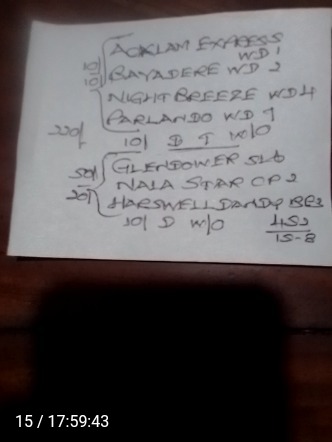 ACKLAM EXPRESS
WD1
10/
10/ BAYADERE WD2
NIGHT BREEZE WD4
PARLANDO WD 7
220/ 10/ D T W/O
50/ GLENDOWER SL6
NALA STAR CP2
20/ HARSWELL DANDY BE2
10/ D W/O 4S2
15-8
15 / 17:59:43